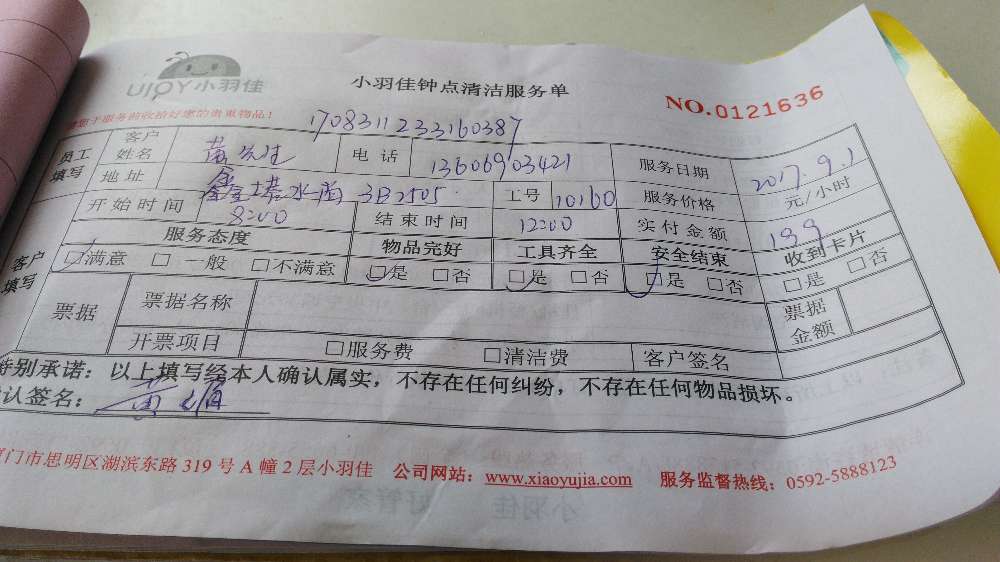 UJOY小羽佳
小羽佳钟点清洁服务单
NO.0121636
您于服务前收拾好您的贵重物品!
1708311233160387
员工填写 客户姓名 黄先生 电话 13606903421 服务日期 2017.9.1
地址 金塔水尚 3B2505 工号 10160 服务价格 元/小时
开始时间 8:00 结束时间 12:00 实付金额 199
客户填写 服务态度 物品完好 工具齐全 安全结束 收到卡片
□满意 □一般 □不满意 □是 □否 □是 □否 □是 □否 □是 □否
票据 票据名称 票据金额
开票项目 □服务费 □清洁费 客户签名
特别承诺:以上填写经本人确认属实,不存在任何纠纷,不存在任何物品损坏。
确认签名:黄
厦门市思明区湖滨东路 319 号 A 幢 2 层小羽佳 公司网站:www.xiaoyujia.com 服务监督热线:0592-5888123